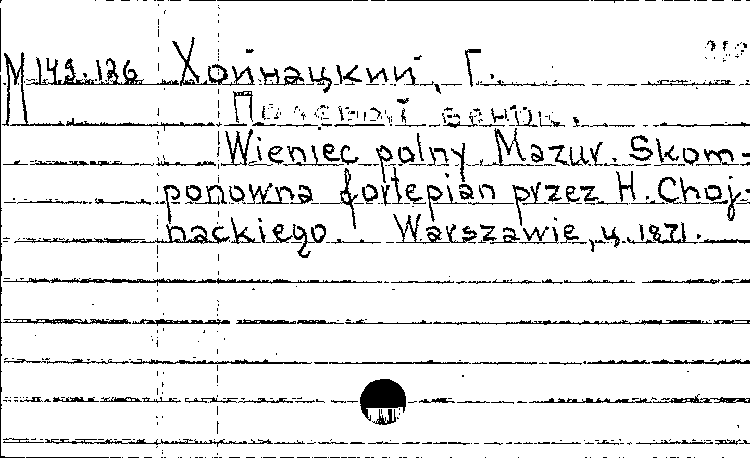 М 149.126 Хойнацкий, Г.
Полевой венок.
Wieniec polny. Mazur. Skom-
ponowna fortepian przez H. Choj-
nackiego.. Warszawie, ц. 1871.